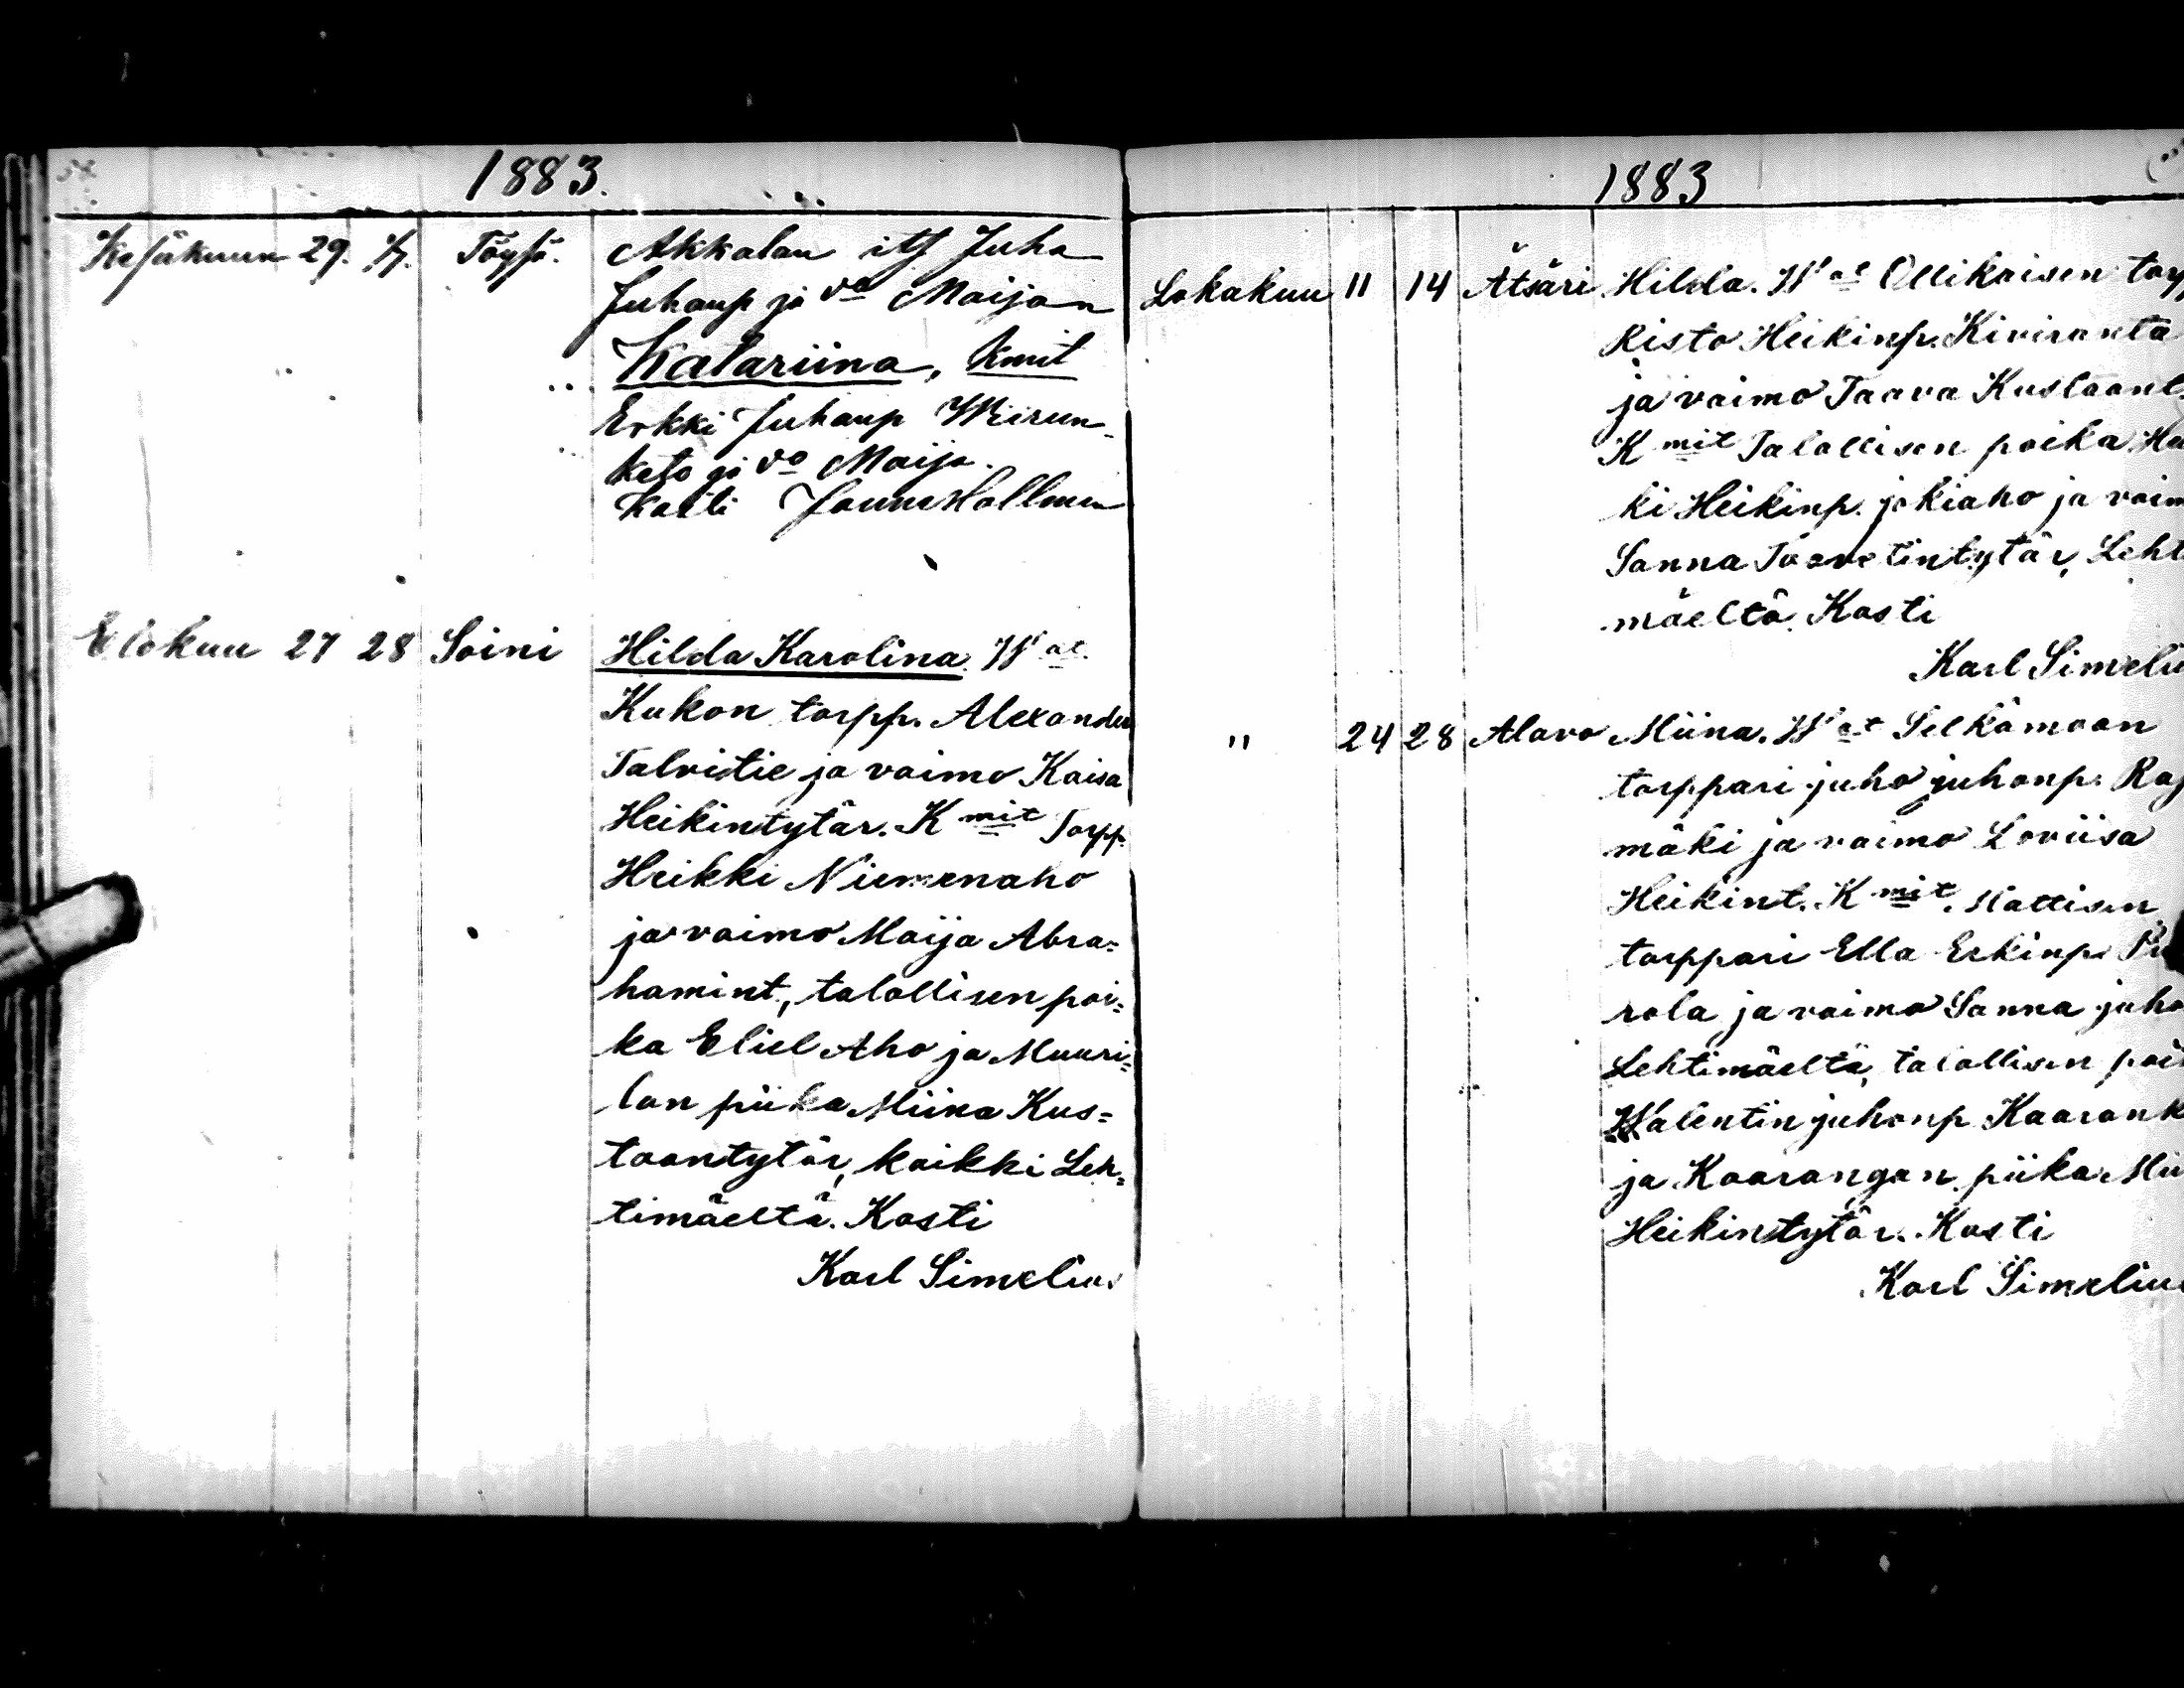 1883.
Kesäkuun 29. Töysä. Akkalan its Juha
Juhanp ja vo Maijan
Katariina, Kmit
Erkki Juhanp Wiirun-
keto ja vo Maija.
Kasti
Elokuu 27 28 Soini Hilda Karolina. W at.
Kukon torpp. Alexander
Talvitie ja vaimo Kaisa
Heikintytär. K mit Torpp.
Heikki Niemenaho
ja vaimo Maija Abra=
hamint., talollisen poi=
ka Eliel Aho ja Muuri=
lan piika Miina Kus=
taantytär, kaikki Leh=
timäeltä. Kasti
Karl Simelius
1883
Lokakuu 11 14 Ätsäri Hilda. W at Ollikaisen torp
Risto Heikinp. Kiviranta
ja vaimo Taava Kustaant.
K mit Talollisen poika Hei
ki Heikinp. jokiaho ja vaim
Sanna Taavetintytär, Leht
mäeltä. Kasti
Karl Simeliu
" 24 28 Alavo Miina. W at Selkämaan
torppari juho juhonp. Raj
mäki ja vaimo Loviisa
Heikint. K mit. Mattisen
torppari Ella Erkinp.
rola ja vaimo Sanna juho
Lehtimäeltä, talollisen poi
Walentin juhonp Kaarank
ja Kaarangan piika Mii
Heikintytär. Kasti
Karl Simeliu